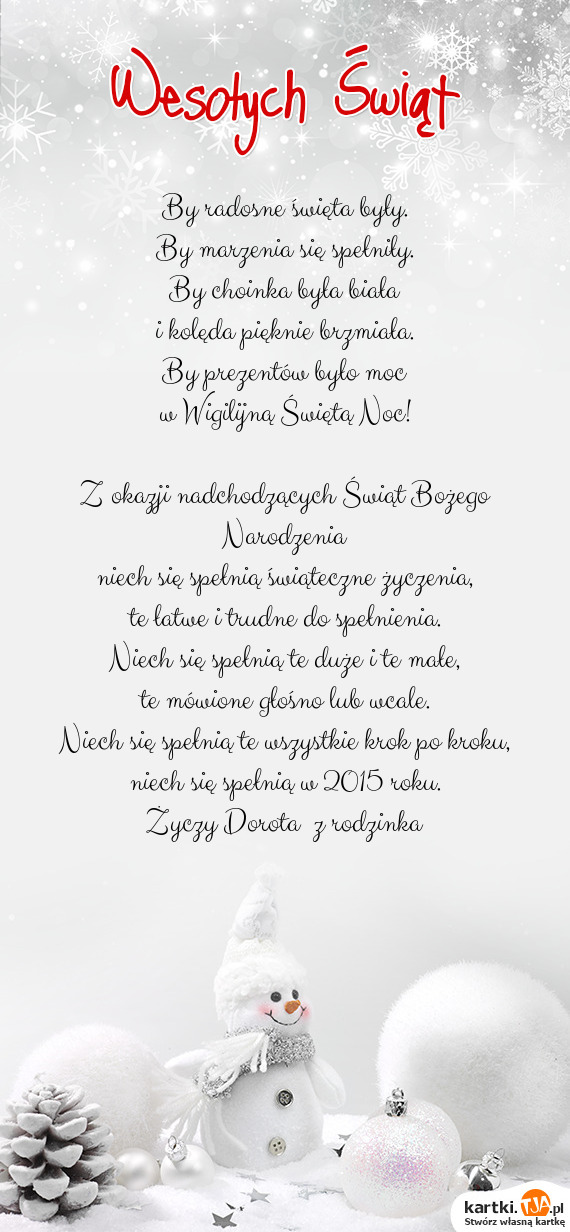 Wesołych Świąt
By radosne święta były.
By marzenia się spełniły.
By choinka była biała
i kolęda pięknie brzmiała.
By prezentów było moc
w Wigilijną Świętą Noc!
Z okazji nadchodzących Świąt Bożego
Narodzenia
niech się spełnią świąteczne życzenia,
te łatwe i trudne do spełnienia.
Niech się spełnią te duże i te małe,
te mówione głośno lub wcale.
Niech się spełnią te wszystkie krok po kroku,
niech się spełnią w 2015 roku.
Życzy Dorota z rodzinka
kartki.TJA.pl
Stwórz własną kartkę